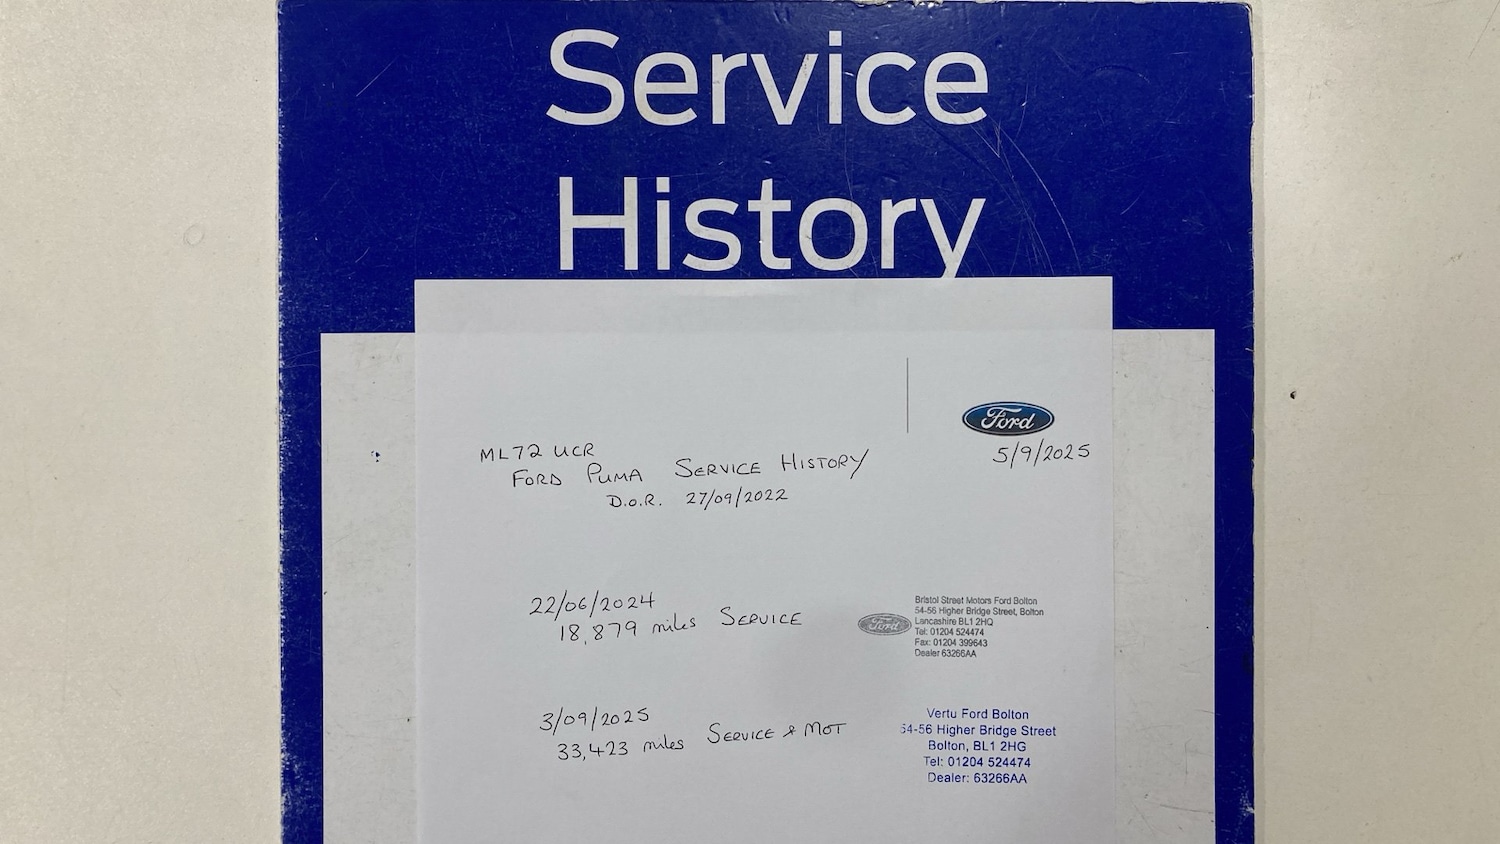 Service
History
Ford
ML72 UCR
5/9/2025
FORD PUMA SERVICE HISTORY
D.O.R. 27/09/2022
22/06/2024
18,879 miles SERVICE
Ford
Bristol Street Motors Ford Bolton
54-56 Higher Bridge Street, Bolton
Lancashire BL1 2HQ
Tel: 01204 524474
Fax: 01204 399643
Dealer 63266AA
3/09/2025
33,423 miles SERVICE & MOT
Vertu Ford Bolton
54-56 Higher Bridge Street
Bolton, BL1 2HG
Tel: 01204 524474
Dealer: 63266AA